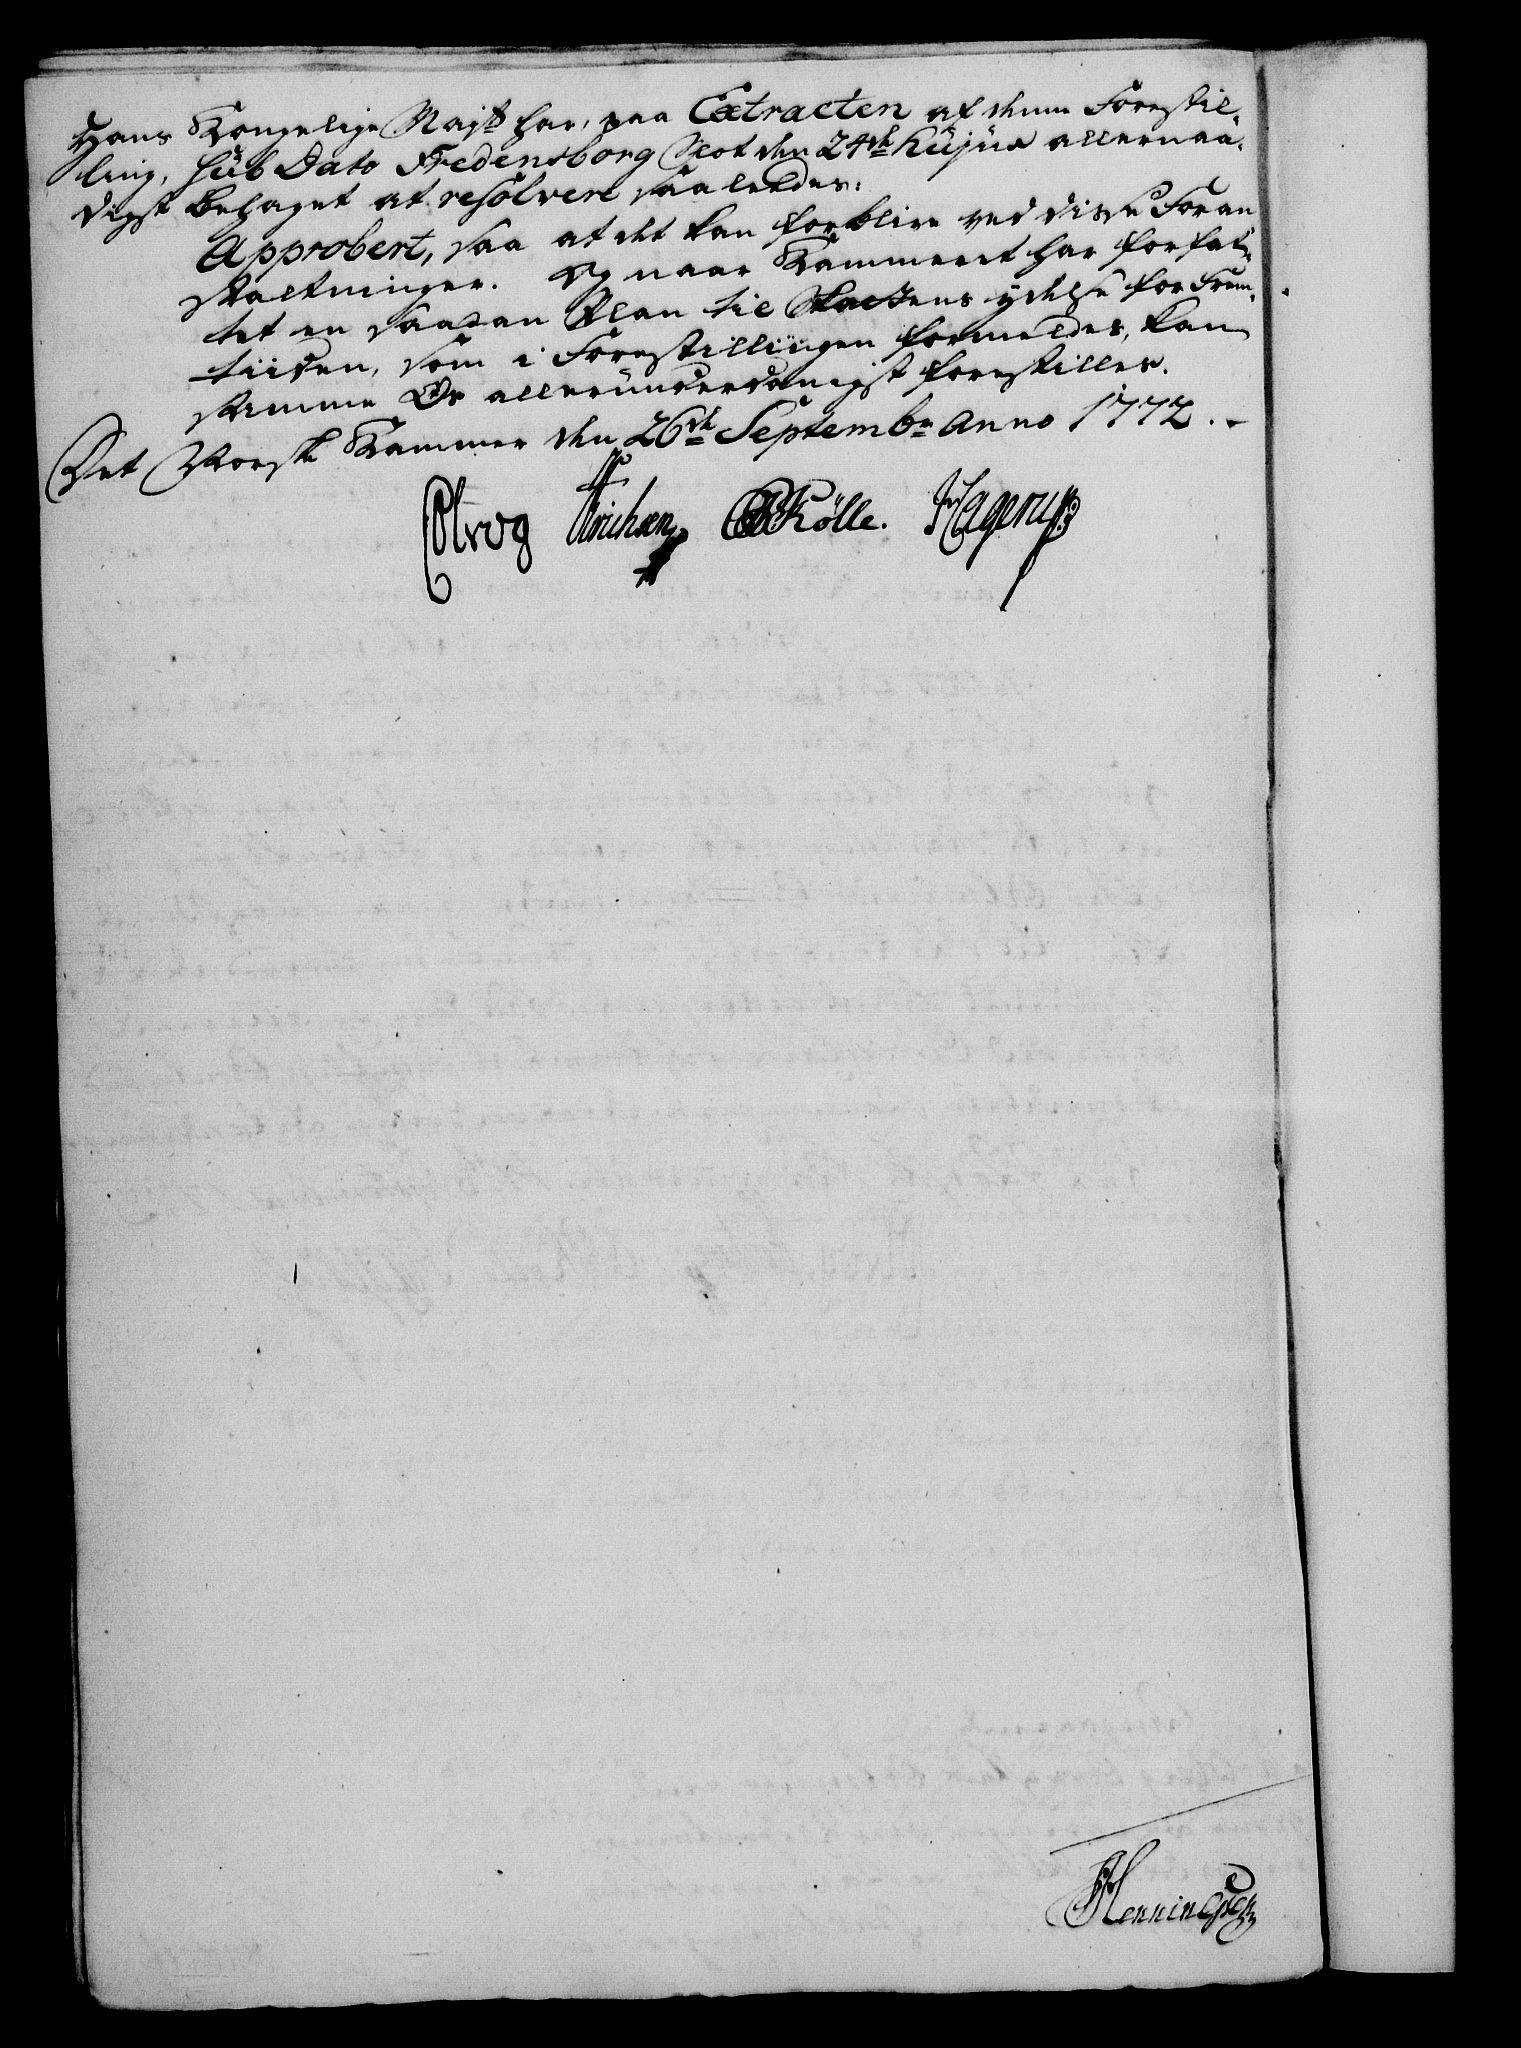 Hans Kongelige Majts har, paa Extracten af denne Forestil-
ling, sub Dato Fredensborg Slot den 24de hujus allernaa-
digst behaget at resolvere saaledes:
Approbert, saa at det kan forblive ved disse Foran
staltninger. Og naar Kammeret har forfat-
tet en saadan Plan til Skattens ydelse for Frem-
tiiden, som i Forestillingen formeldes, kan
samme Os allerunderdanigst forestilles.
Det Norske Kammer den 26de Septembr Anno 1772.
Hagerup
Kølle.